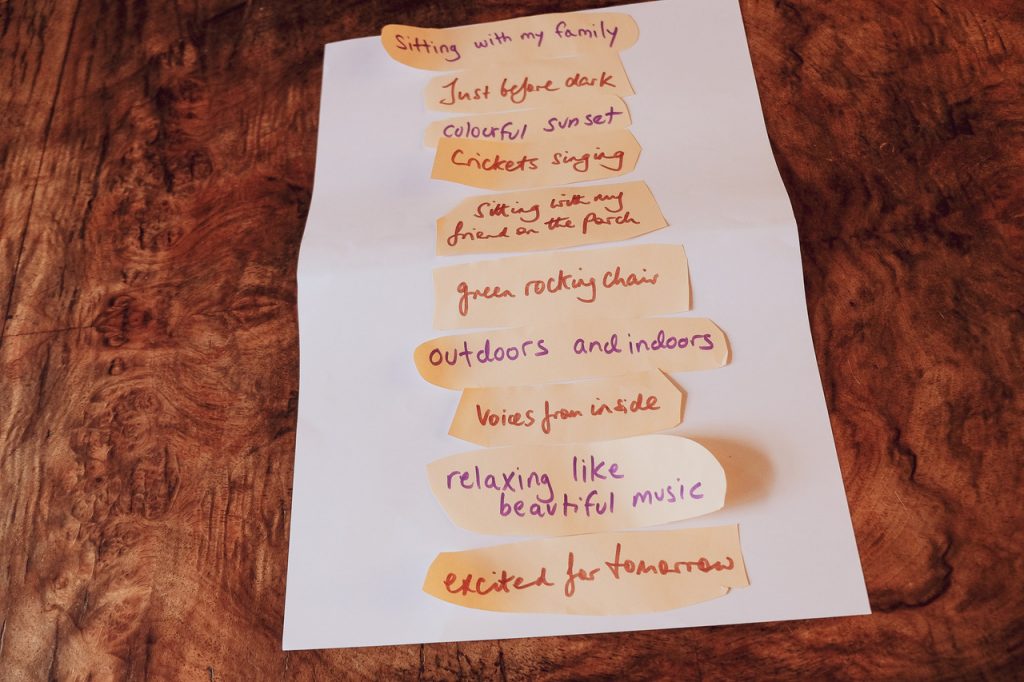 Sitting with my family
Just before dark
colourful sunset
Crickets singing
Sitting with my
friend on the porch
green rocking chair
outdoors and indoors
Voices from inside
relaxing like
beautiful music
excited for tomorrow